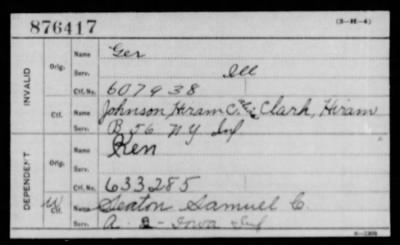 876417
(3-H-4)
INVALID
Orig.
Name
Ger
Serv.
Ill
Ctf. No.
607938
Ctf.
Name
Johnson, Hiram C. Clark, Hiram
Serv.
B 56 N Y Inf
DEPENDENT
Orig.
Name
Ren
Serv.
Ctf. No.
633285
W
Ctf.
Name
Seaton Samuel C.
Serv.
A. 2 - Iowa Inf